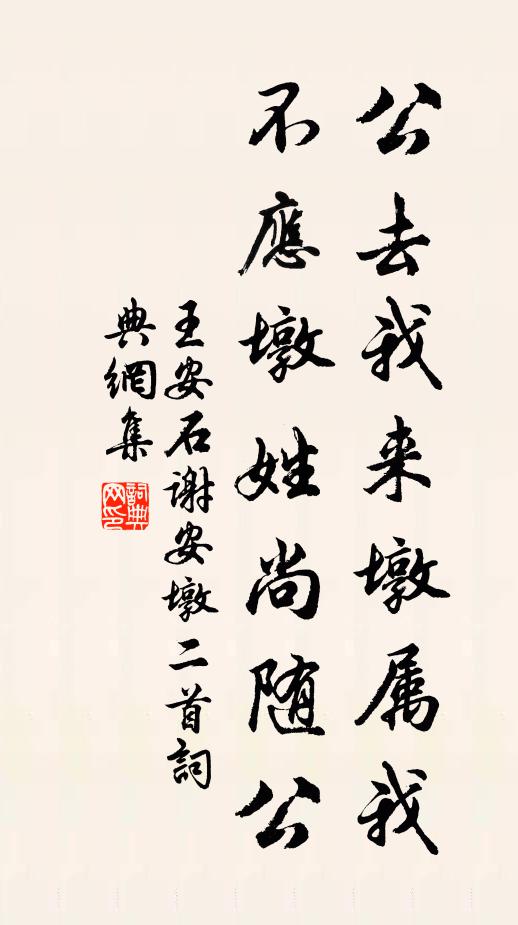 公去我来墩属我
不應墩姓尚随公
王安石谢安墩二首詞
典網集
詞典
网印